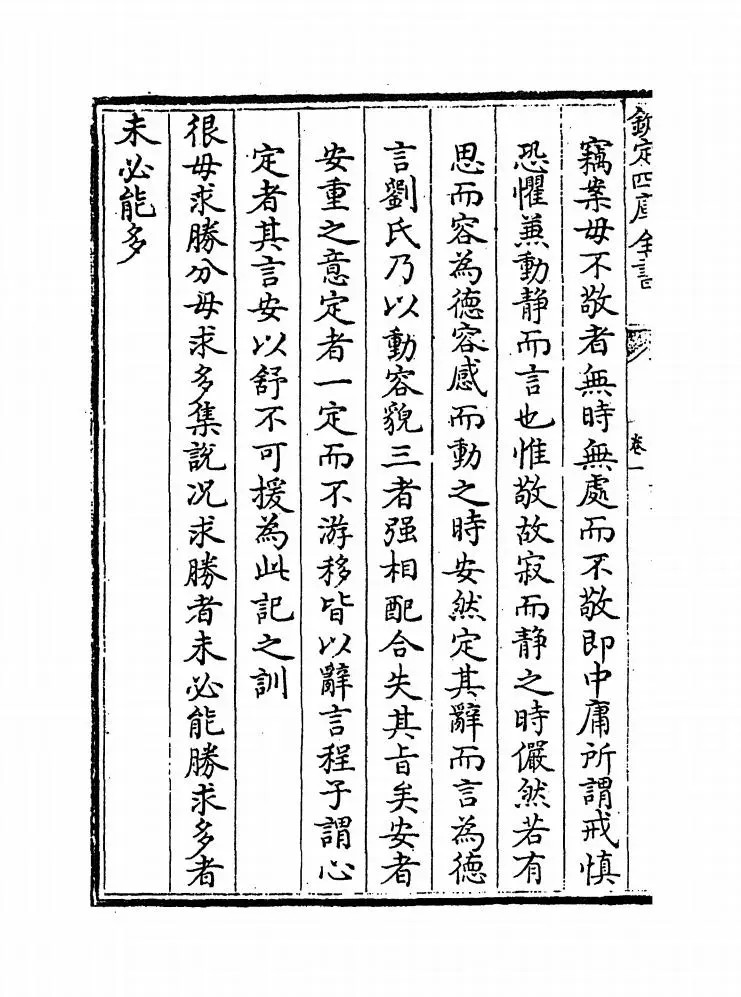 欽定四庫全書
卷一
竊案毋不敬者無時無處而不敬即中庸所謂戒慎
恐懼兼動静而言也惟敬故寂而静之時儼然若有
思而容為德容感而動之時安然定其辭而言為德
言劉氏乃以動容貌三者强相配合失其旨矣安者
安重之意定者一定而不游移皆以辭言程子謂心
定者其言安以舒不可援為此記之訓
很毋求勝分毋求多集說况求勝者未必能勝求多者
未必能多